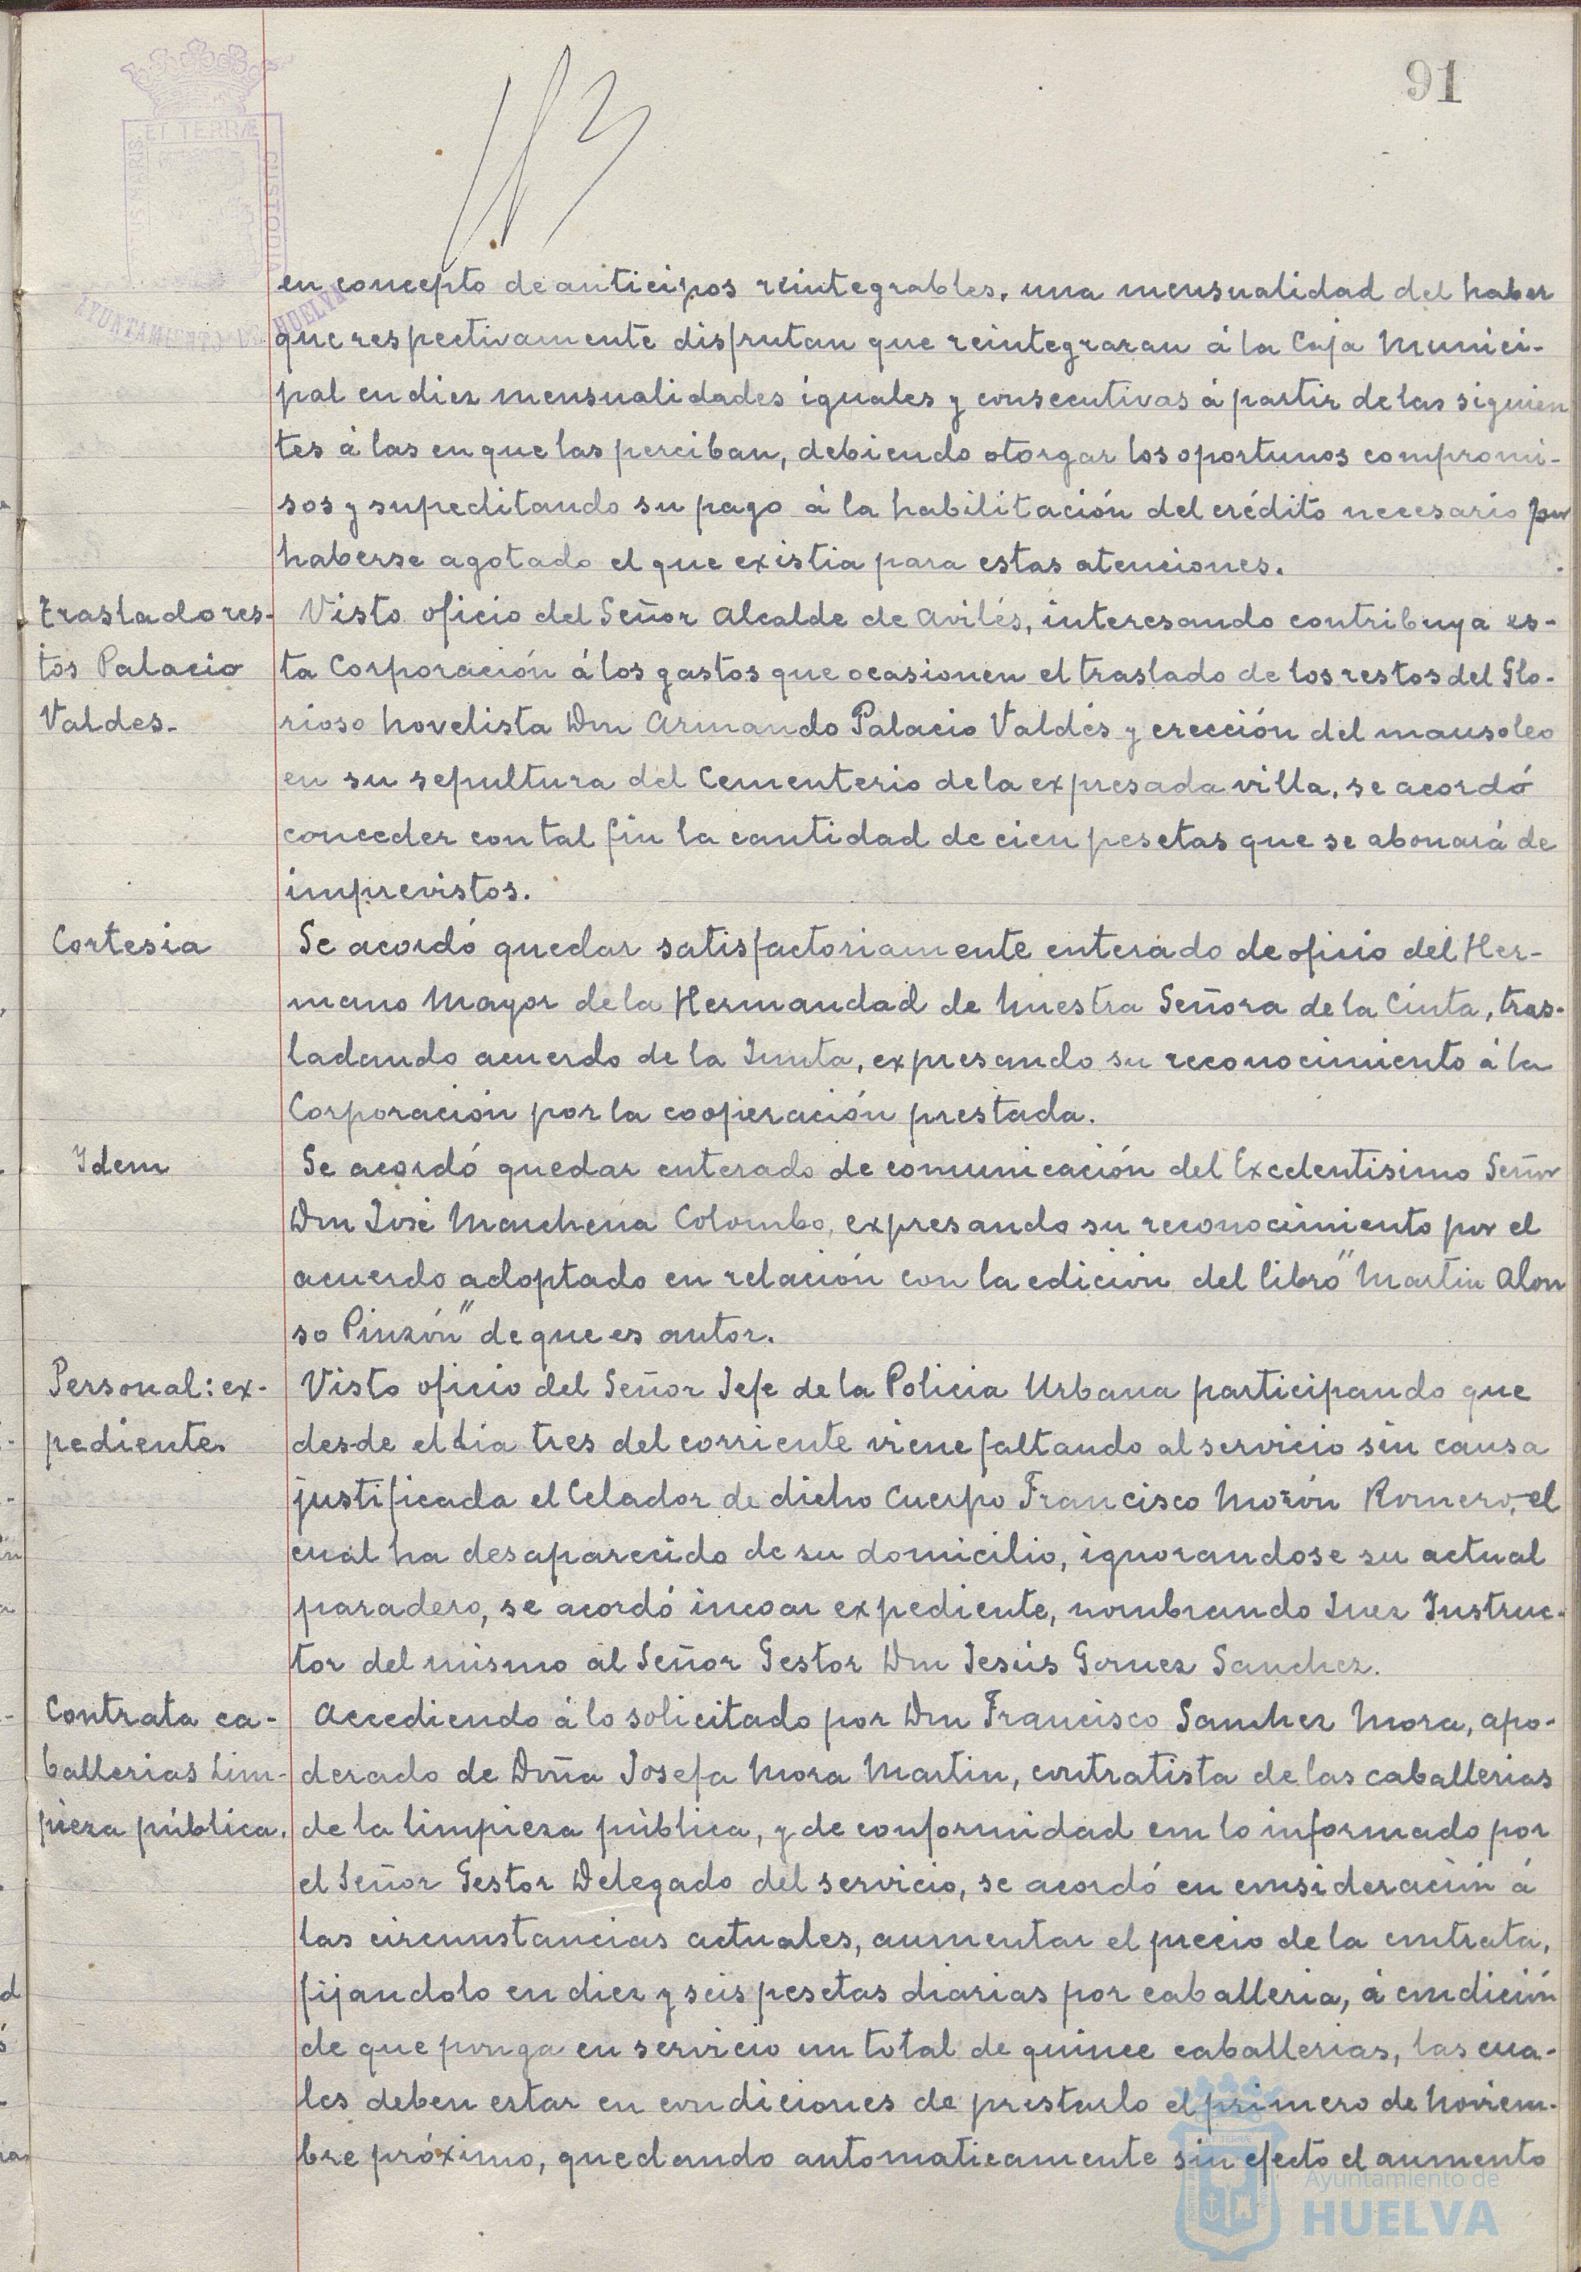 91
ET TERRÆ
CUSTODIA
AYUNTAMIENTO DE HUELVA
en concepto de anticipos reintegrables, una mensualidad del haber
que respectivamente disfrutan que reintegraran á la Caja Munici-
pal en diez mensualidades iguales y consecutivas á partir de las siguien
tes á las en que las perciban, debiendo otorgar los oportunos compromi-
sos y supeditando su pago á la habilitación del crédito necesario por
haberse agotado el que existia para estas atenciones.
Traslado res-
tos Palacio
Valdes.-
Visto oficio del Señor Alcalde de Avilés, interesando contribuya es-
ta Corporación á los gastos que ocasionen el traslado de los restos del Glo-
rioso novelista Don Armando Palacio Valdés y erección del mausoleo
en su sepultura del Cementerio de la expresada villa, se acordó
conceder con tal fin la cantidad de cien pesetas que se abonará de
imprevistos.
Cortesia
Se acordó quedar satisfactoriamente enterado de oficio del Her-
mano Mayor de la Hermandad de Nuestra Señora de la Cinta, tras-
ladando acuerdo de la Junta, expresando su reconocimiento á la
Corporación por la cooperación prestada.
Idem
Se acordó quedar enterado de comunicación del Excelentisimo Señor
Don José Marchena Colombo, expresando su reconocimiento por el
acuerdo adoptado en relación con la edición del libro "Martin Alon
so Pinzón" de que es autor.
Personal: ex-
pediente.
Visto oficio del Señor Jefe de la Policia Urbana participando que
desde el dia tres del corriente viene faltando al servicio sin causa
justificada el Celador de dicho Cuerpo Francisco Morón Romero, el
cual ha desaparecido de su domicilio, ignorandose su actual
paradero, se acordó incoar expediente, nombrando Juez Instruc-
tor del mismo al Señor Gestor Don Jesús Gomez Sanchez.
Contrata ca-
ballerias Lim-
pieza pública.
Accediendo á lo solicitado por Don Francisco Sanchez Mora, apo-
derado de Doña Josefa Mora Martin, contratista de las caballerias
de la limpieza pública, y de conformidad con lo informado por
el Señor Gestor Delegado del servicio, se acordó en consideración á
las circunstancias actuales, aumentar el precio de la contrata,
fijandolo en diez y seis pesetas diarias por caballeria, á condición
de que ponga en servicio un total de quince caballerias, las cua-
les deben estar en condiciones de prestarlo el primero de Noviem-
bre próximo, quedando automaticamente sin efecto el aumento
Ayuntamiento de
HUELVA